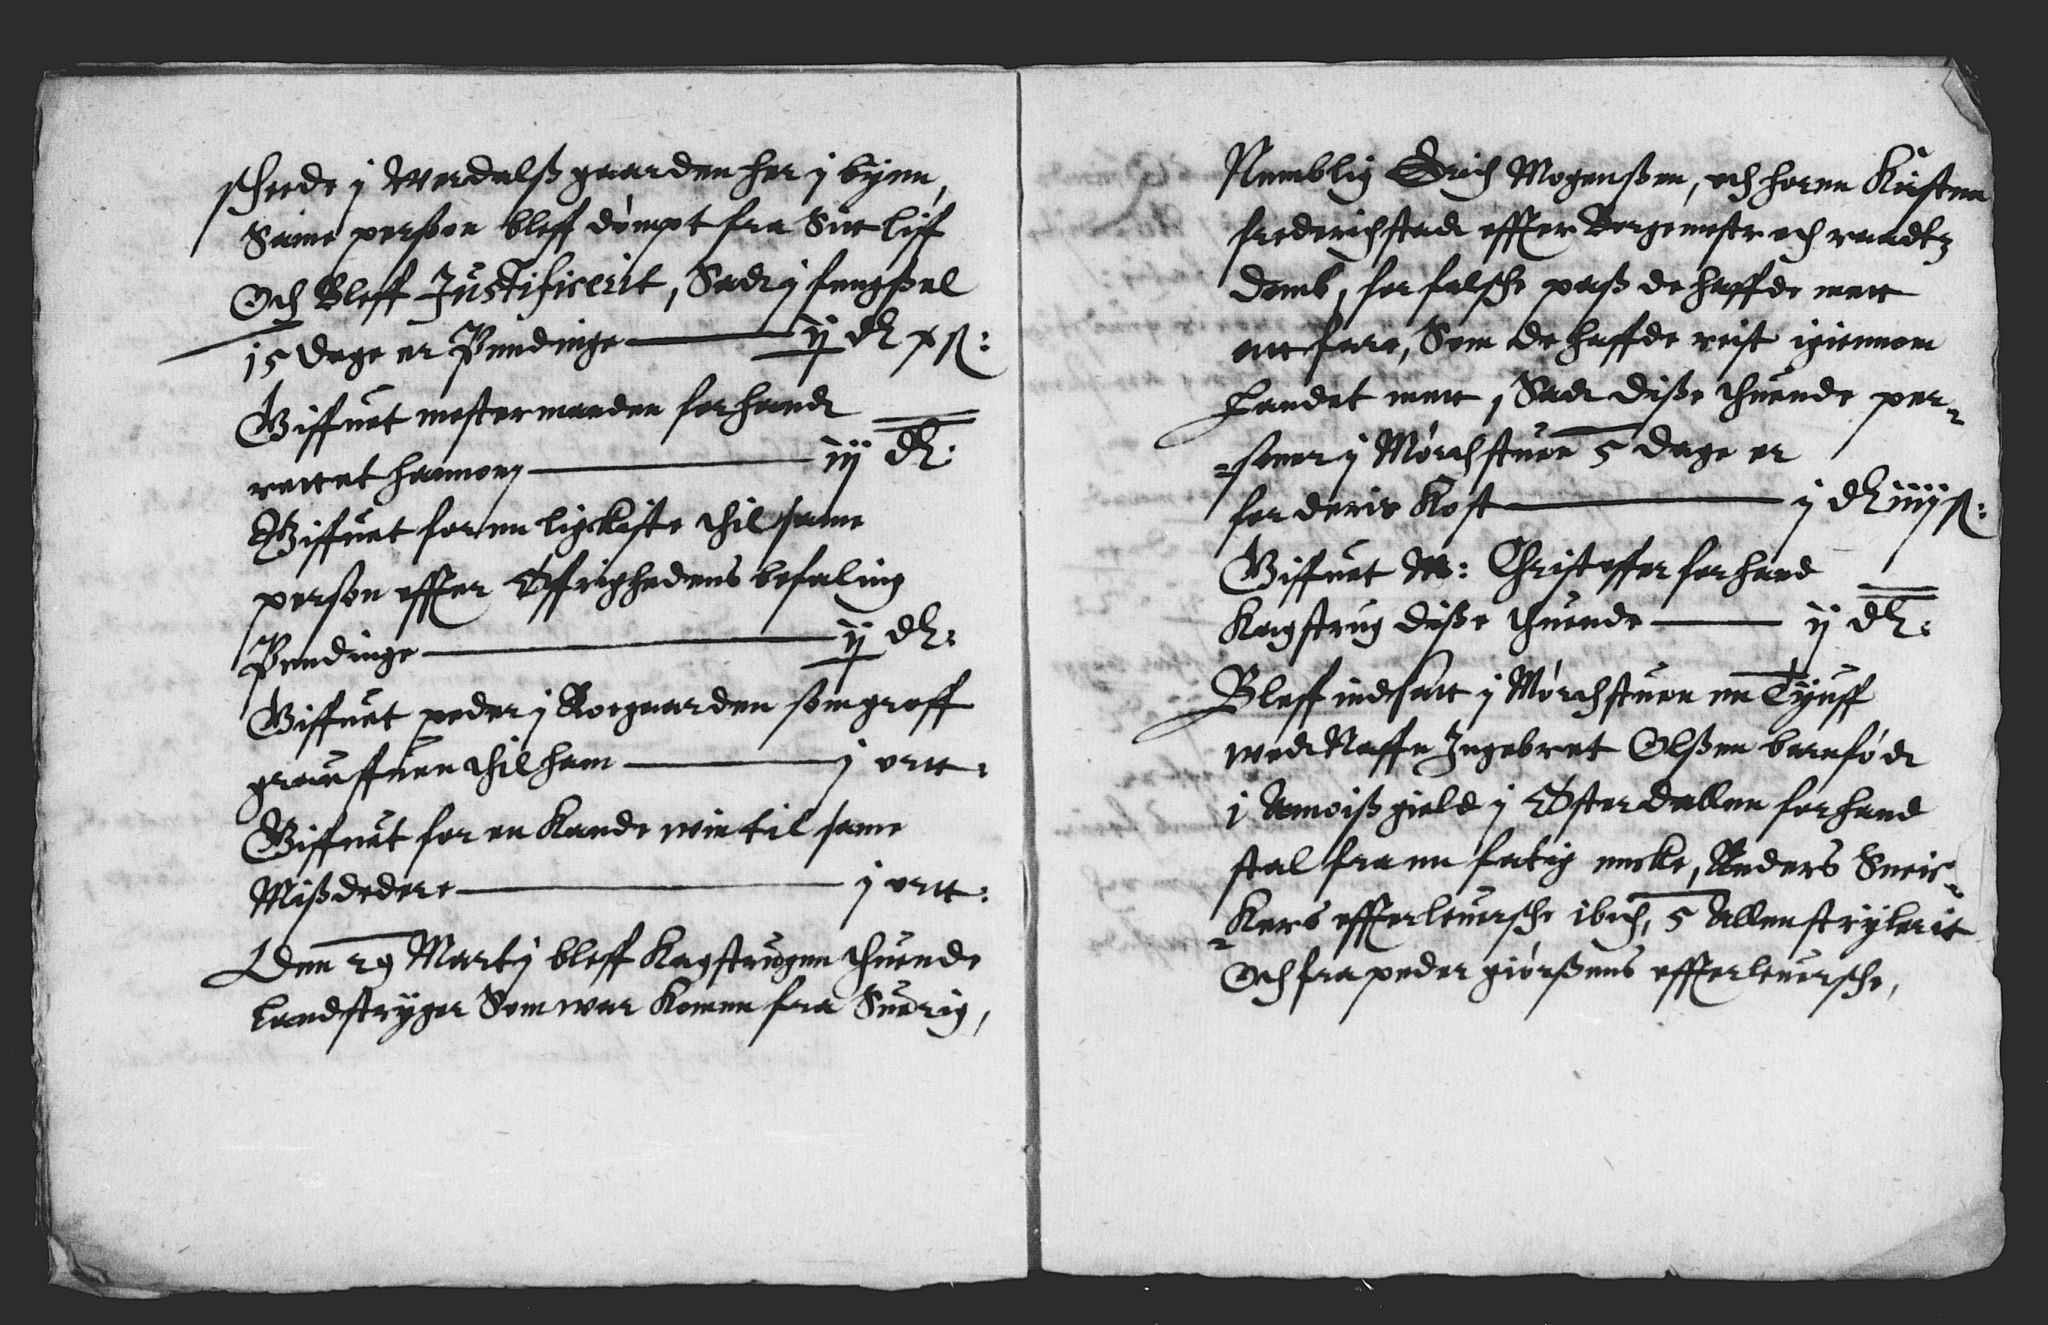 skeede j Werdalß gaarden her j byen,
Same perßon bleff dømpt fra Sitt liff
Och Bleff Justificerit, Sad j fengßel
15 dage er Pendinge — ij dlr x ß:
Giffuet mestermanden for hand
rettet hannom — iij dlr:
Giffuet for en ligkiste thil same
person effter Øffrighedens befaling
Pendinge — ij dlr:
Giffuet peder j Roegaarden som groff
graffuen thil ham — j ortt:
Giffuet for en Kande win til same
Mißdedere — j ortt:
Den 29 Martij bleff Kagstrugen thuende
landstryger Som war Komen fra Suerig,
Nemblig Erich Mogenßen, och horen Kirsten
frederichstad effter Borgemestr och raadtz
domb, for falske paß de haffde mett
att fare, Som de haffde reist igiennom
Landet mett, Sad diße thuende per-
-soner j Mørchstuen 5 dage er
for deris Kost — j dlr iiij ß:
Giffuet M: Christoffer for hand
Kagstrug diße thuende — ij dlr:
Bleff indsatt j Mørchstuen en Tyuff
wed Naffn Ingebret Olßen barnfød
j Amoiß gield j Østerdallen for hand
stal fra en fatig encke, Anders Sneic-
-Kers effterleuerske ibid, 5 Allen
Och fra peder giørßens effterleuerske,